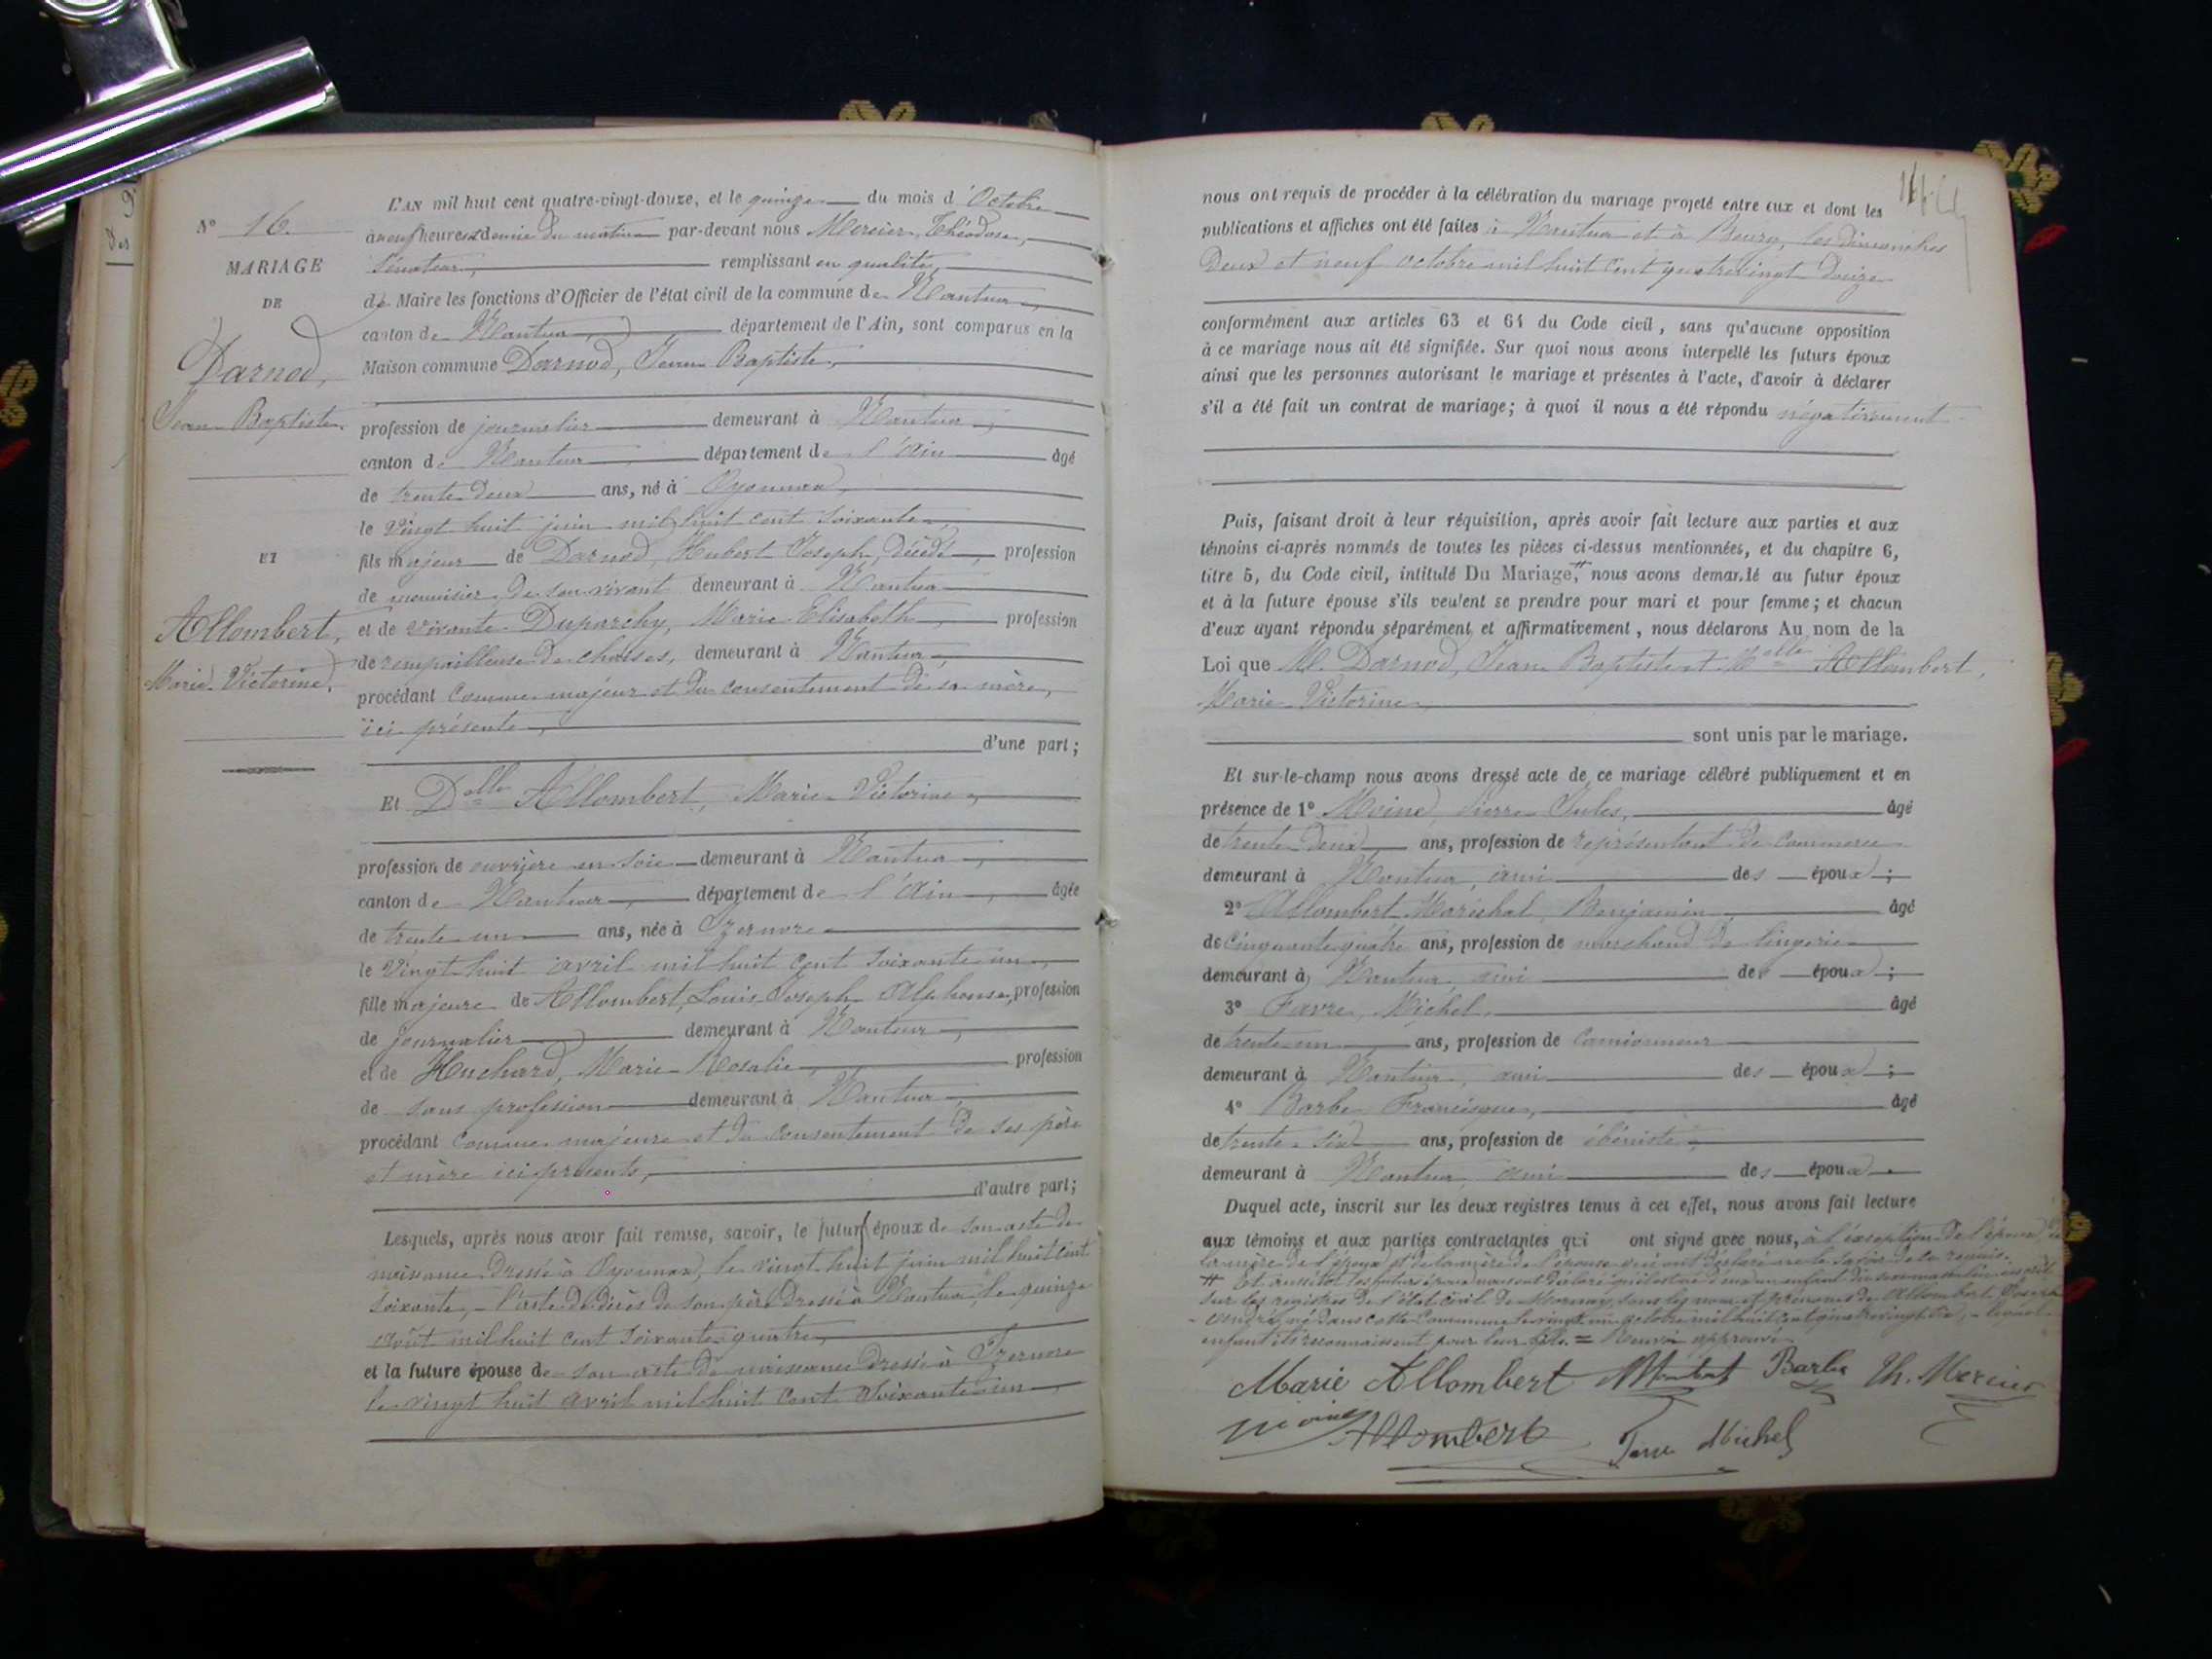 N° 16.
MARIAGE
DE
Darnod,
Jean Baptiste.
ET
Allombert,
Marie Victorine.
L'AN mil huit cent quatre-vingt-douze, et le quinze du mois d'Octobre
à neuf heures et demie du matin par-devant nous Mercier, Théodose,
Sénateur, remplissant en qualité
de Maire les fonctions d'Officier de l'état civil de la commune de Nantua,
canton de Nantua, département de l'Ain, sont comparus en la
Maison commune Darnod, Jean Baptiste,
profession de journalier demeurant à Nantua,
canton de Nantua département de l'Ain âgé
de trente deux ans, né à Oyonnax,
le vingt huit juin mil huit cent soixante,
fils majeur de Darnod, Hubert Joseph, décédé, profession
de menuisier, de son vivant demeurant à Nantua
et de vivante Duparchy, Marie Elisabeth, profession
de rempailleuse de chaises, demeurant à Nantua,
procédant comme majeur et du consentement de sa mère,
ici présente,
d'une part;
Et Delle Allombert, Marie Victorine,
profession de ouvrière en soie demeurant à Nantua,
canton de Nantua, département de l'Ain, âgée
de trente un ans, née à Izernore
le vingt huit avril mil huit cent soixante un,
fille majeure de Allombert, Louis Joseph Alphonse, profession
de journalier demeurant à Nantua,
et de Huchard, Marie Rosalie, profession
de sans profession demeurant à Nantua,
procédant comme majeure et du consentement de ses père
et mère ici présents,
d'autre part;
Lesquels, après nous avoir fait remise, savoir, le futur époux de son acte de
naissance dressé à Oyonnax, le vingt huit juin mil huit cent
soixante, - l'acte de décès de son père dressé à Nantua, le quinze
août mil huit cent soixante quatre,
et la future épouse de son acte de naissance dressé à Izernore
le vingt huit avril mil huit cent soixante un,
nous ont requis de procéder à la célébration du mariage projeté entre eux et dont les
publications et affiches ont été faites à Nantua et à Bourg, les dimanches
deux et neuf octobre mil huit cent quatre vingt douze
conformément aux articles 63 et 64 du Code civil, sans qu'aucune opposition
à ce mariage nous ait été signifiée. Sur quoi nous avons interpellé les futurs époux
ainsi que les personnes autorisant le mariage et présentes à l'acte, d'avoir à déclarer
s'il a été fait un contrat de mariage; à quoi il nous a été répondu négativement
Puis, faisant droit à leur réquisition, après avoir fait lecture aux parties et aux
témoins ci-après nommés de toutes les pièces ci-dessus mentionnées, et du chapitre 6,
titre 5, du Code civil, intitulé Du Mariage, # nous avons demandé au futur époux
et à la future épouse s'ils veulent se prendre pour mari et pour femme; et chacun
d'eux ayant répondu séparément et affirmativement, nous déclarons Au nom de la
Loi que M. Darnod, Jean Baptiste et Melle Allombert,
Marie Victorine,
sont unis par le mariage.
Et sur-le-champ nous avons dressé acte de ce mariage célébré publiquement et en
présence de 1° Moine, Pierre Jules, âgé
de trente deux ans, profession de représentant de commerce
demeurant à Nantua, ami des époux;
2° Allombert Maréchal, Benjamin, âgé
de cinquante quatre ans, profession de marchand de lingerie
demeurant à Nantua, ami des époux;
3° Favre, Michel, âgé
de trente un ans, profession de camionneur
demeurant à Nantua, ami des époux;
4° Barbe Francisque, âgé
de trente six ans, profession de ébéniste
demeurant à Nantua, ami des époux.
Duquel acte, inscrit sur les deux registres tenus à cet effet, nous avons fait lecture
aux témoins et aux parties contractantes qui ont signé avec nous, à l'exception de l'époux de
la mère de l'époux et de la mère de l'épouse qui ont déclaré ne le savoir de ce requis.
# Et aussitôt les futurs époux nous ont déclaré qu'il est né d'eux un enfant du sexe masculin inscrit
sur les registres de l'état civil de Mornay, sous les nom et prénoms de Allombert Joseph
né dans cette commune le vingt un octobre mil huit cent quatre vingt, - lequel
enfant ils reconnaissent pour leur fils. = Renvoi approuvé
Marie Allombert Barbe Th. Mercier
Moine Allombert Favre Michel